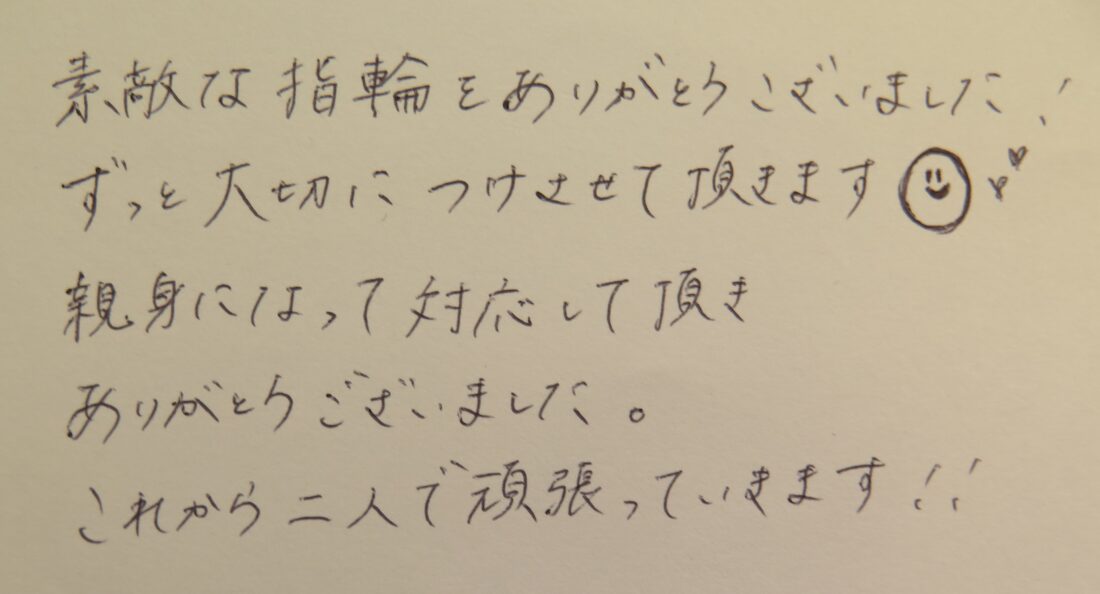 素敵な指輪をありがとうございました!
ずっと大切につけさせて頂きます
親身になって対応して頂き
ありがとうございました。
これから二人で頑張っていきます!!